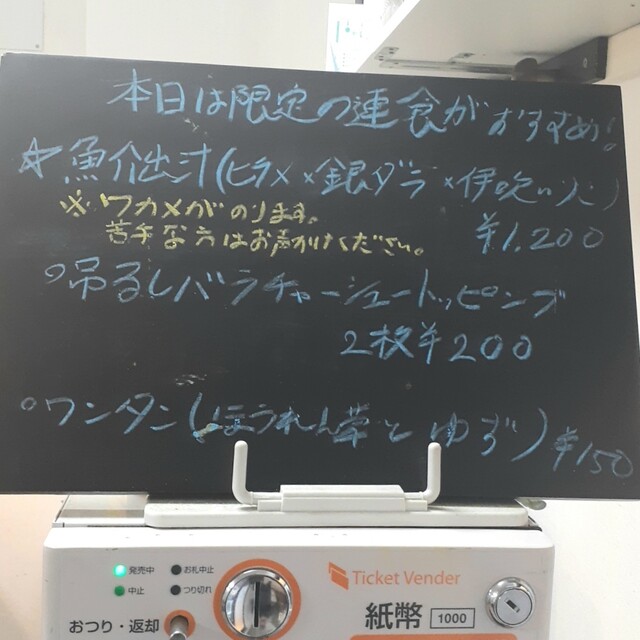 本日は限定の連食がおすすめ!
☆魚介出汁(ヒラメ×銀ダラ×伊吹いりこ)
※ワカメがのります。
苦手な方はお声がけください。
¥1,200
○吊るしバラチャーシュートッピング
2枚¥200
○ワンタン(ほうれん草とゆず)¥150
発売中
お札中止
中止
つり切れ
おつり・返却
Ticket Vender
紙幣 1000